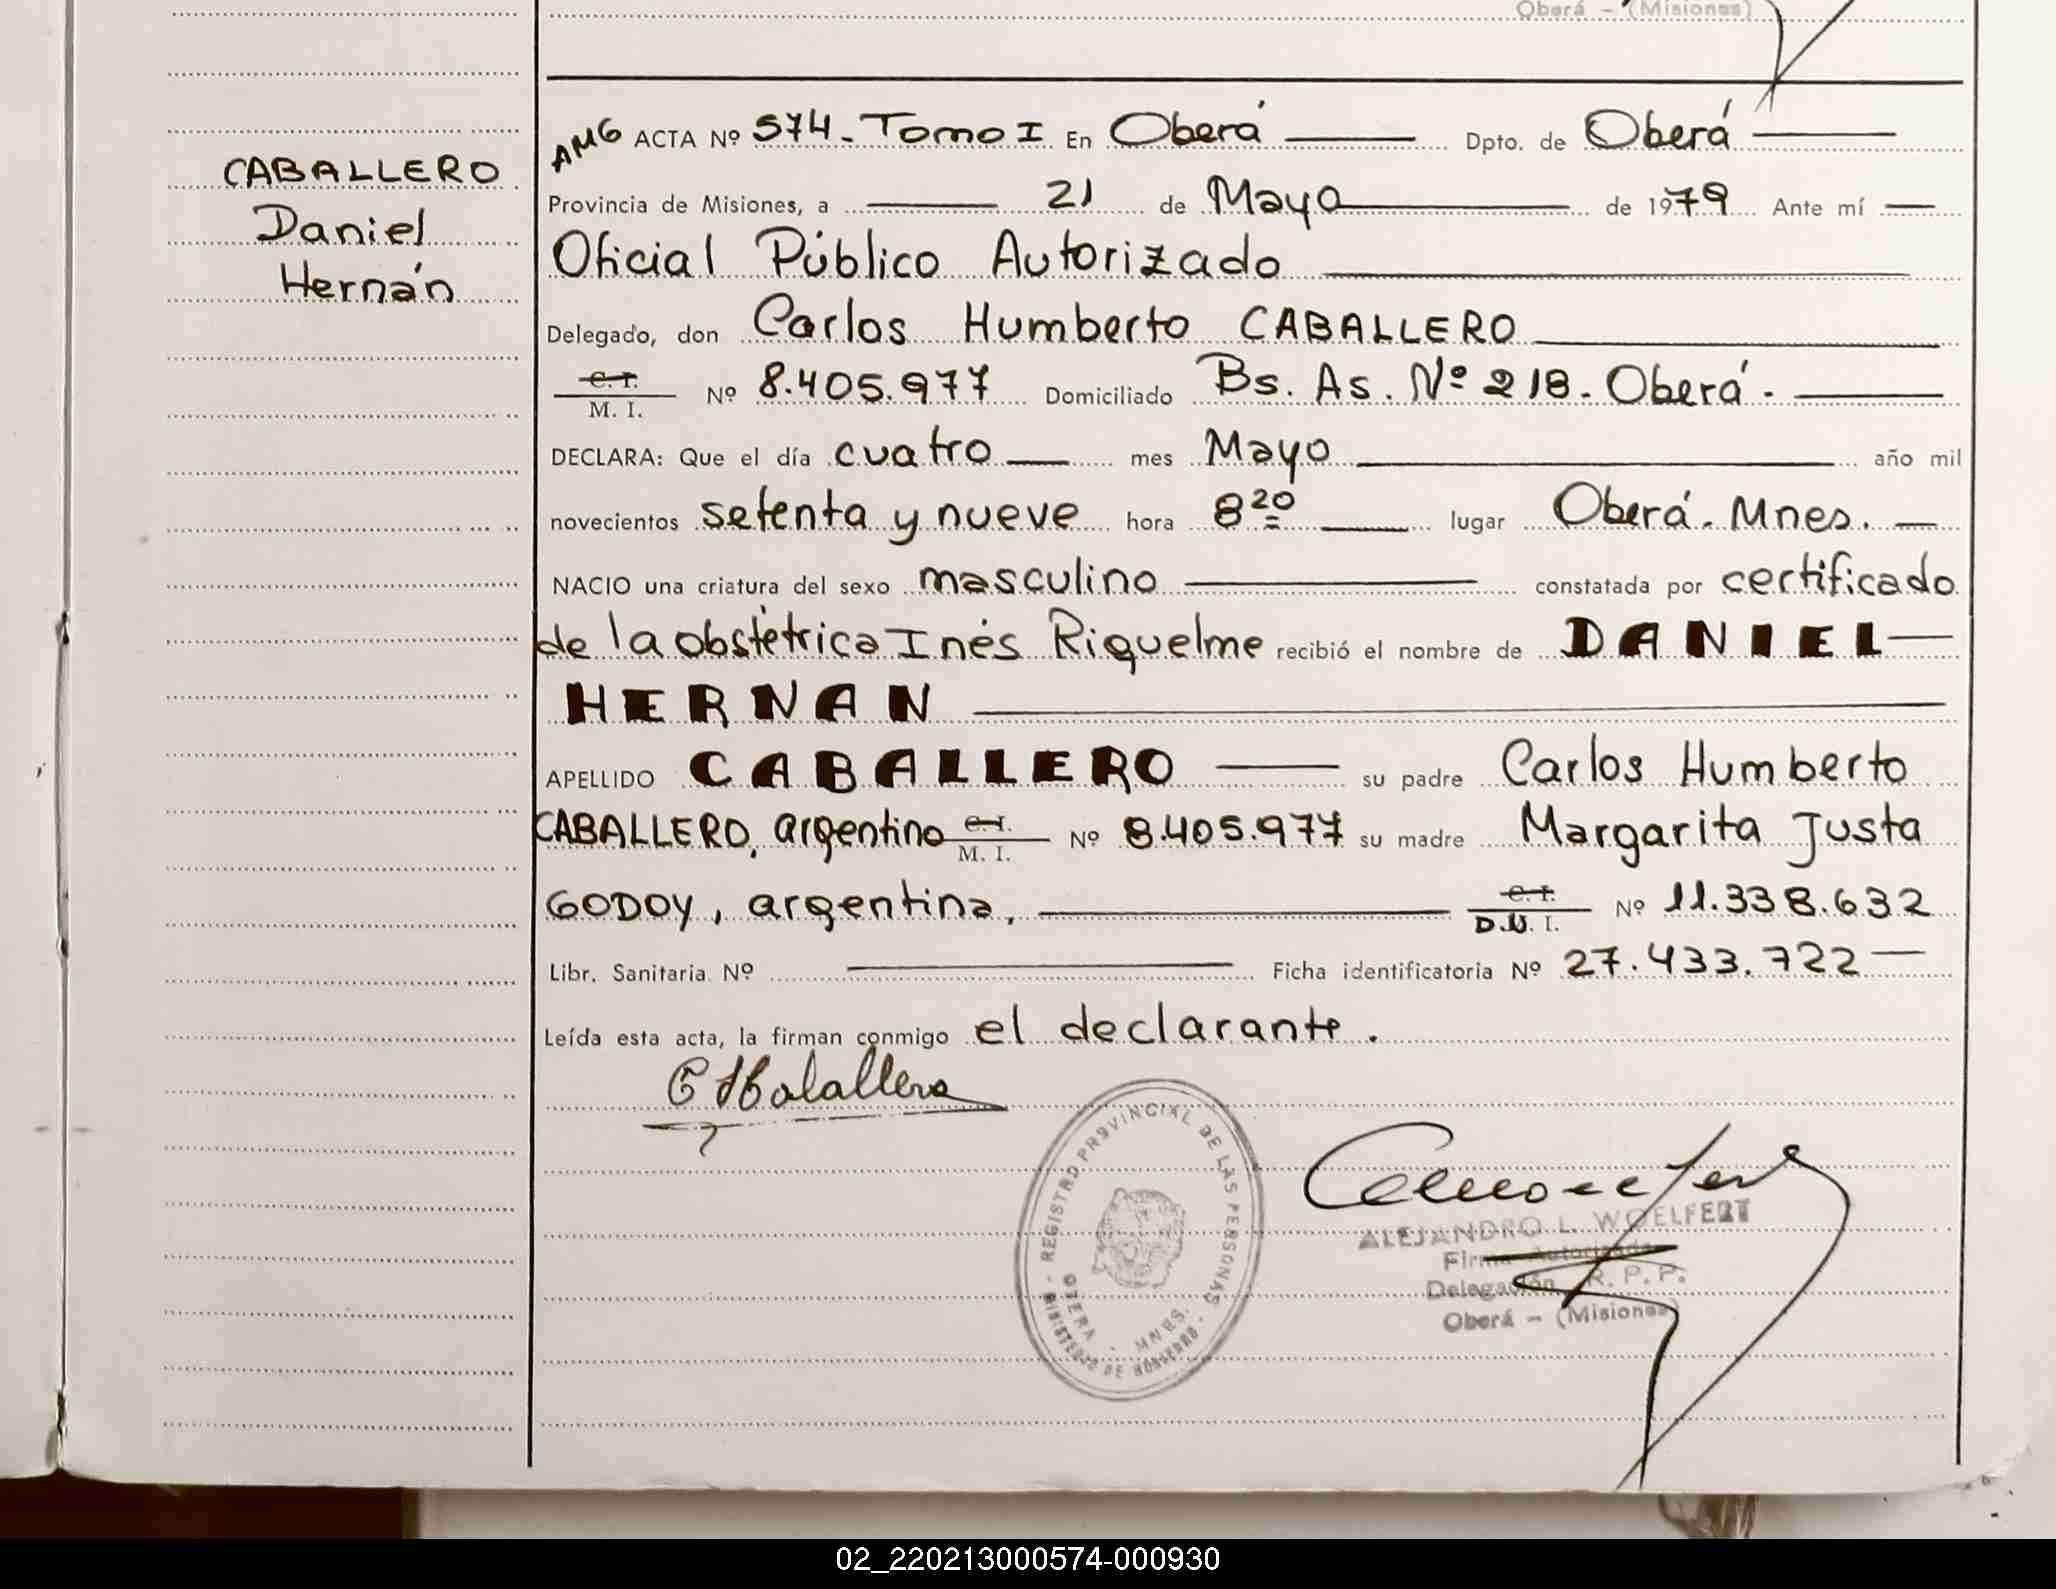 Oberá - (Misiones)
CABALLERO
Daniel
Hernán
AMG ACTA Nº 574 - Tomo I En Oberá Dpto. de Oberá
Provincia de Misiones, a 21 de Mayo de 1979 Ante mí
Oficial Público Autorizado
Delegado, don Carlos Humberto CABALLERO
C. I. M. I. Nº 8.405.977 Domiciliado Bs. As. Nº 218 - Oberá -
DECLARA: Que el día cuatro mes Mayo año mil
novecientos setenta y nueve hora 8 20 lugar Oberá - Mnes.
NACIO una criatura del sexo masculino constatada por certificado
de la obstétrica Inés Riquelme recibió el nombre de DANIEL
HERNAN
APELLIDO CABALLERO su padre Carlos Humberto
CABALLERO, argentino C. I. M. I. Nº 8.405.977 su madre Margarita Justa
GODOY, argentina, C. I. D.N. I. Nº 11.338.632
Libr. Sanitaria Nº Ficha identificatoria Nº 27.433.722
Leída esta acta, la firman conmigo el declarante.
C H Caballero
REGISTRO PROVINCIAL DE LAS PERSONAS
OBERA - MNES.
MINISTERIO DE GOBIERNO
ALEJANDRO L. WOELFERT
Firma Autorizada
Delegación R. P. P.
Oberá - (Misiones)
02_220213000574-000930